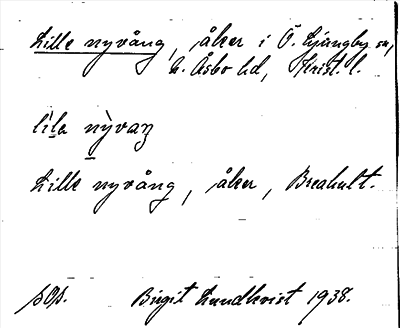 Lille nyvång, åker i Ö. Ljungby sn,
N. Åsbo hd, Krist. l.
lìlə nỳvaŋ
Lille nyvång, åker, Breahult.
sOp. Birgit Lundkvist 1938.